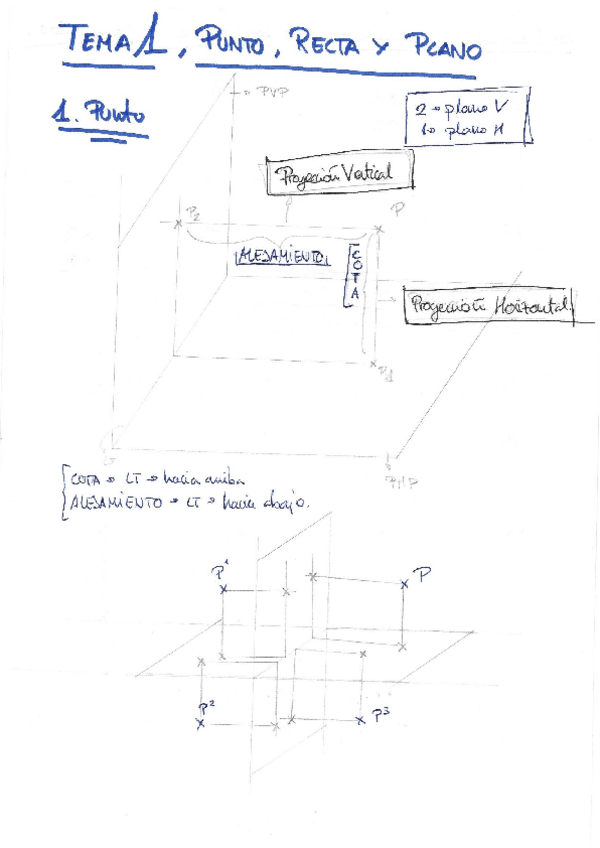 TEMA 1, PUNTO, RECTA Y PLANO
1. Punto
PVP
2 → plano V
1 → plano H
Proyección Vertical
P2
P
ALEJAMIENTO
COTA
Proyección Horizontal
P1
PHP
COTA → LT → hacia arriba
ALEJAMIENTO → LT → hacia abajo.
P¹
P
P²
P³